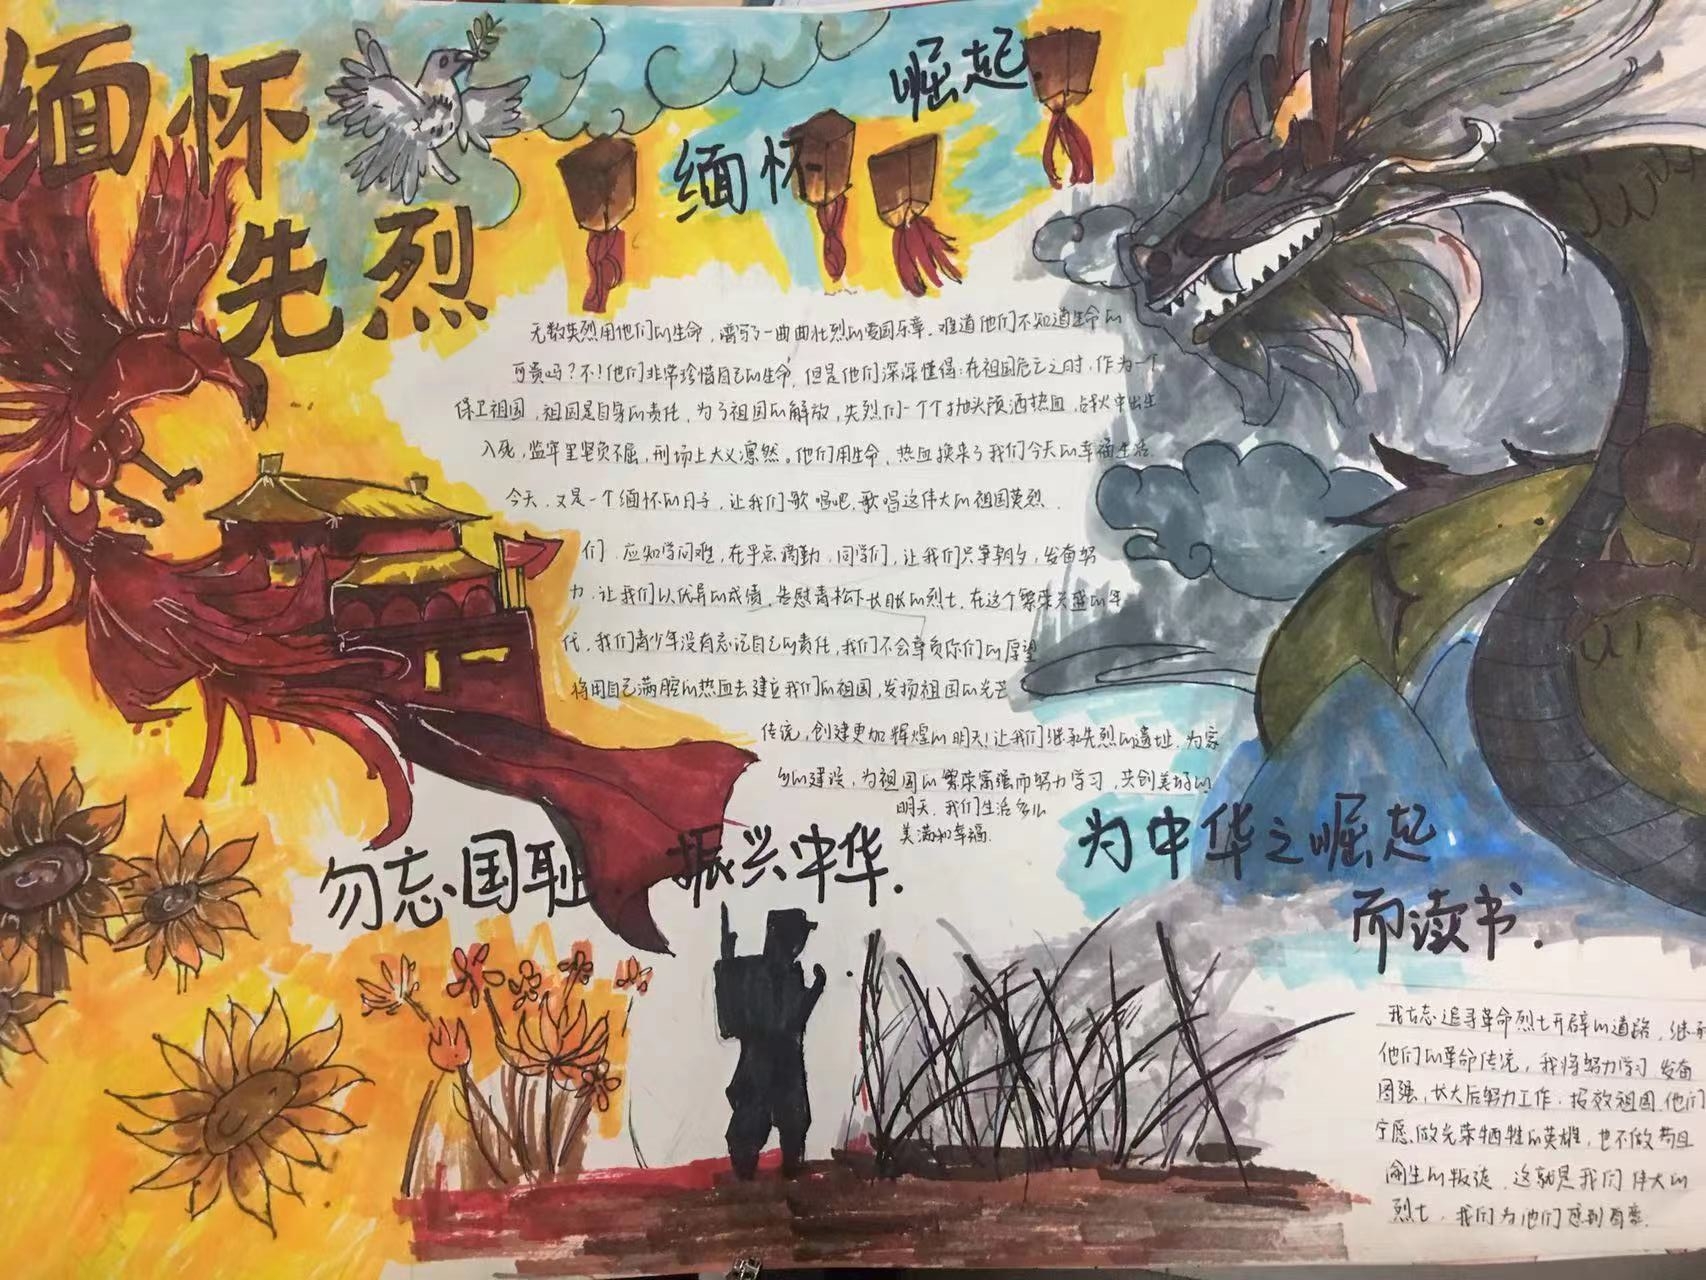 缅怀
先烈
缅怀
崛起
无数先烈用他们的生命，谱写了一曲曲壮烈的爱国乐章。难道他们不知道生命的
可贵吗？不！他们非常珍惜自己的生命，但是他们深深懂得：在祖国危亡之时，作为一个
保卫祖国，祖国是自身的责任，为了祖国的解放，先烈们一个个抛头颅洒热血，战火中出生
入死，监牢里坚贞不屈，刑场上大义凛然。他们用生命、热血换来了我们今天的幸福生活.
今天，又是一个缅怀的日子，让我们歌唱吧，歌唱这伟大的祖国英烈.
们，应知学问难，在乎点滴勤，同学们，让我们只争朝夕，发奋努
力，让我们以优异的成绩，告慰青松下长眠的烈士，在这个繁荣昌盛的年
代，我们青少年没有忘记自己的责任，我们不会辜负你们的厚望
将用自己满腔的热血去建立我们的祖国，发扬祖国的光芒
传统，创建更加辉煌的明天！让我们继承先烈的遗址，为家
乡的建设，为祖国的繁荣富强而努力学习，共创美好的
明天，我们生活多么
美满和幸福.
勿忘国耻 振兴中华.
为中华之崛起
而读书.
我志追寻革命烈士开辟的道路，继承
他们的革命传统，我将努力学习 发奋
图强，长大后努力工作，报效祖国，他们
宁愿做光荣牺牲的英雄，也不做苟且
偷生的叛徒，这就是我们伟大的
烈士，我们为他们感到自豪.